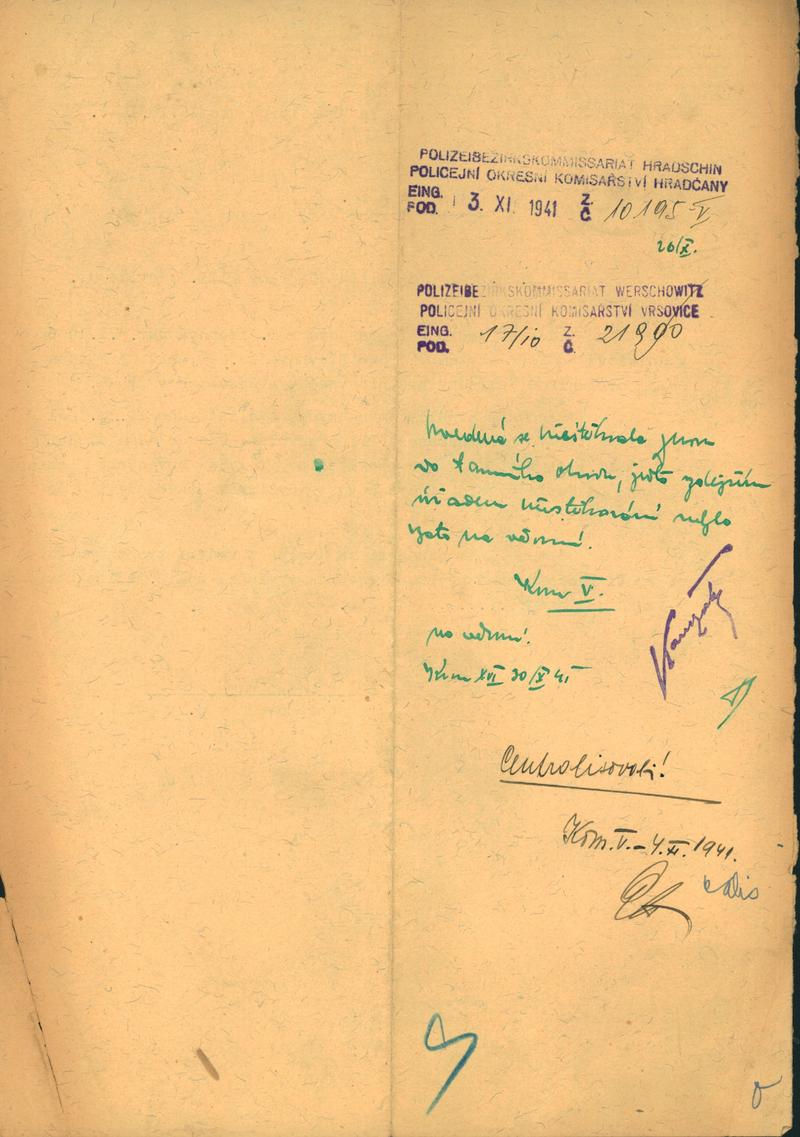 POLIZEIBEZIRKSKOMMISSARIAT HRADSCHIN
POLICEJNÍ OKRESNÍ KOMISAŘSTVÍ HRADČANY
EING. Z.
POD. 3. XI. 1941 Č. 10195-V
20/X.
POLIZEIBEZIRKSKOMMISSARIAT WERSCHOWITZ
POLICEJNÍ OKRESNÍ KOMISAŘSTVÍ VRŠOVICE
EING. 17/10 Z. 21990
POD. Č.
Uvedená se
do obvodu, zdejším
úřadem nebylo
vzato na vědomí.
Kom V.
na vědomí.
Kom XVI 30/X 41
Centralisovati!
Kom. V. - 4. XI. 1941.